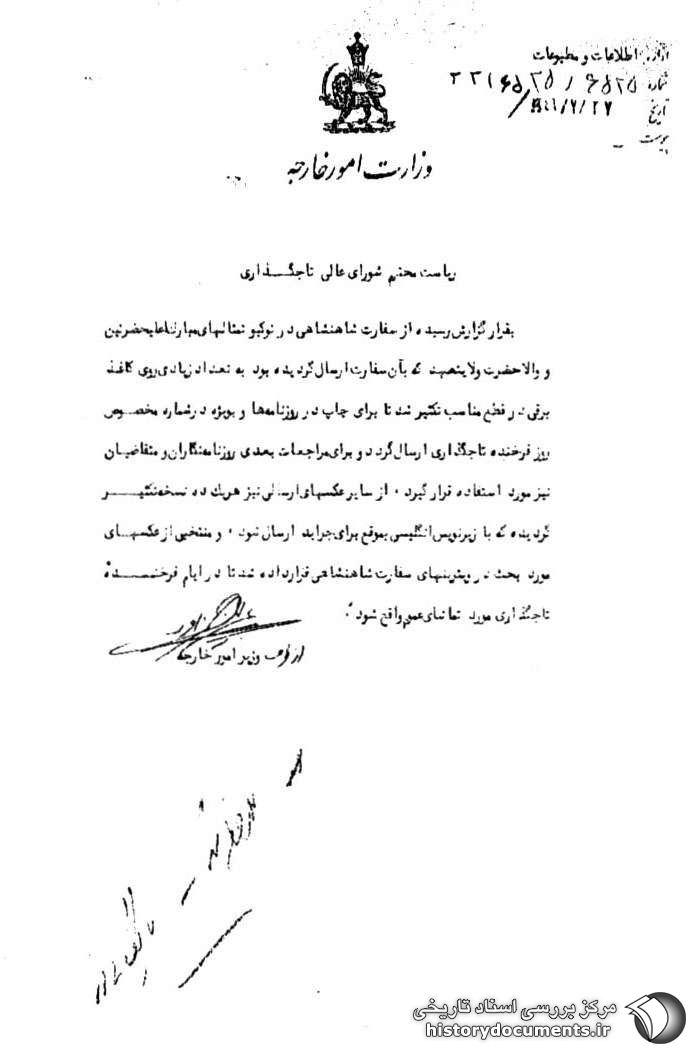 اداره اطلاعات و مطبوعات
شماره
تاریخ
پیوست
وزارت امور خارجه
ریاست محترم شورای عالی تاجگـــذاری
بقرار گزارش رسیده از سفارت شاهنشاهی در توکیو تمثالهای مبارک اعلیحضرتین
و والاحضرت ولایتعهد که بآن سفارت ارسال گردیده بود به تعداد زیادی روی کاغذ
برقی در قطع مناسب تکثیر شد تا برای چاپ در روزنامه‌ها و بویژه در شماره مخصوص
روز فرخنده تاجگذاری ارسال گردد و برای مراجعات بعدی روزنامه‌نگاران و متقاضیان
نیز مورد استفاده قرار گیرد ۰ از سایر عکسهای ارسالی نیز هریک ده نسخه تکثیـــر
گردیده که با زیرنویس انگلیسی بموقع برای جراید ارسال شود ۰ و منتخبی از عکسهــای
مورد بحث در ویترینهای سفارت شاهنشاهی قرار داده شد تا در ایام فرخنـــده
تاجگذاری مورد تماشای عموم واقع شود ۰
از طرف وزیر امور خارجه
مرکز بررسی اسناد تاریخی
historydocuments.ir